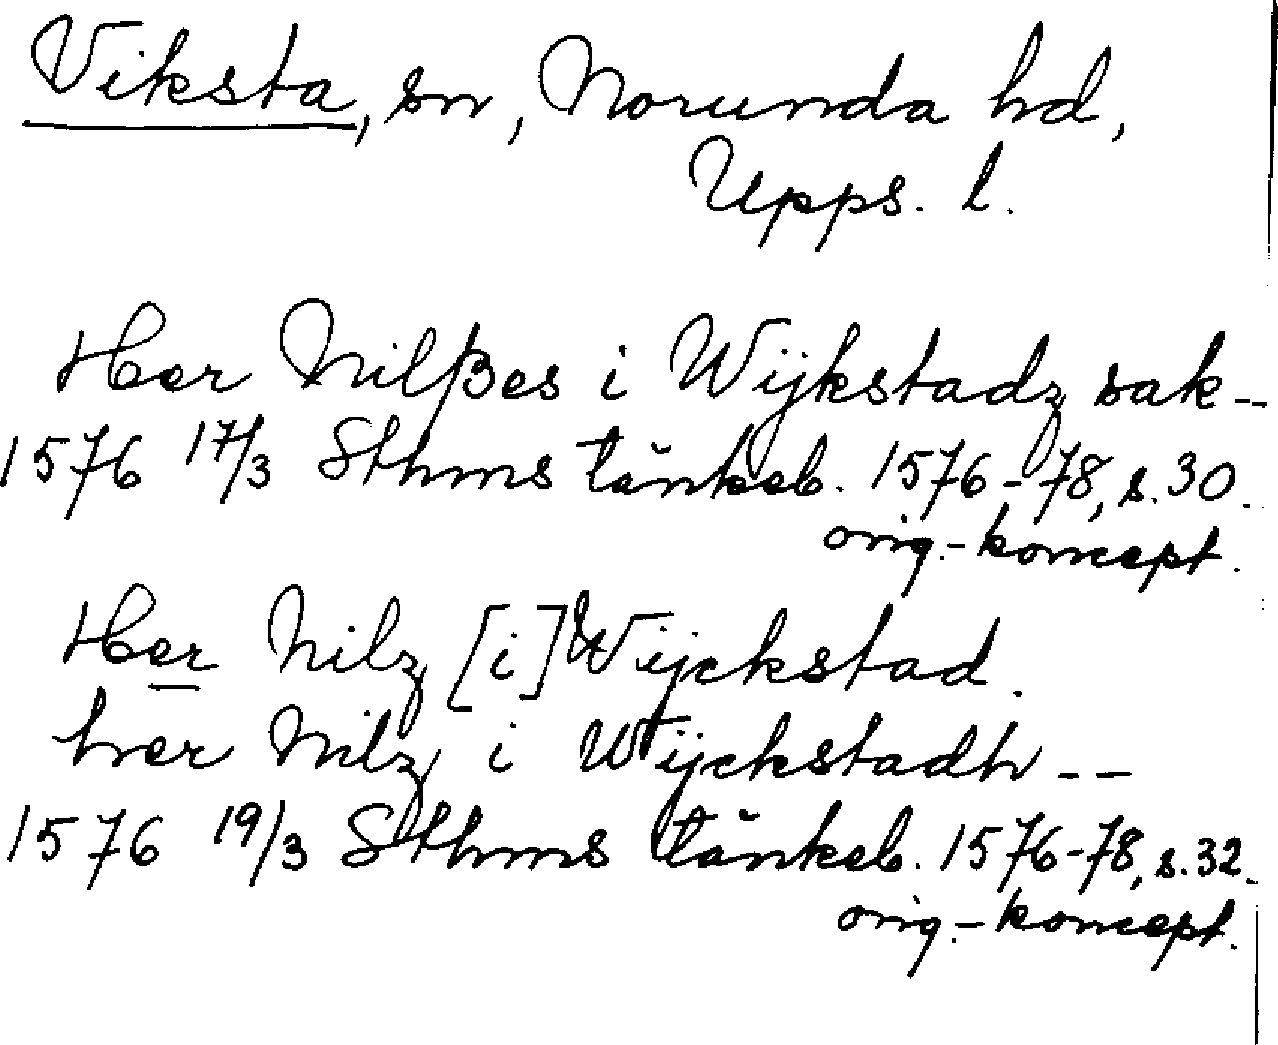 Viksta, sn, Norunda hd,
Upps. l.
Her Nilßes i Wijkstadz sak--
1576 17/3 Sthms tänkeb. 1576-78, s. 30.
orig.-koncept.
Her Nilz [i] Wijckstad.
her Nilz i Wijckstadh --
1576 19/3 Sthms tänkeb. 1576-78, s. 32.
orig.-koncept.